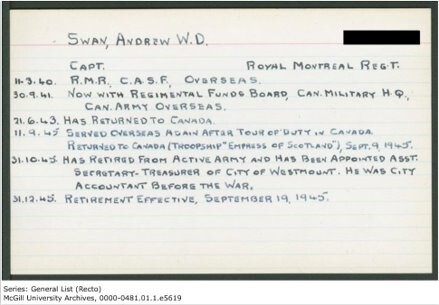 SWAN, ANDREW W.D.
CAPT. ROYAL MONTREAL REGT.
11.3.40. R.M.R., C.A.S.F., OVERSEAS.
30.9.41. NOW WITH REGIMENTAL FUNDS BOARD, CAN. MILITARY H.Q.,
CAN. ARMY OVERSEAS.
21.6.43. HAS RETURNED TO CANADA.
11.9.45 SERVED OVERSEAS AGAIN AFTER TOUR OF DUTY IN CANADA.
RETURNED TO CANADA (TROOPSHIP "EMPRESS OF SCOTLAND"), SEPT. 9, 1945.
31.10.45. HAS RETIRED FROM ACTIVE ARMY AND HAS BEEN APPOINTED ASST.
SECRETARY-TREASURER OF CITY OF WESTMOUNT. HE WAS CITY
ACCOUNTANT BEFORE THE WAR.
31.12.45. RETIREMENT EFFECTIVE, SEPTEMBER 19, 1945.
Series: General List (Recto)
McGill University Archives, 0000-0481.01.1.e5619